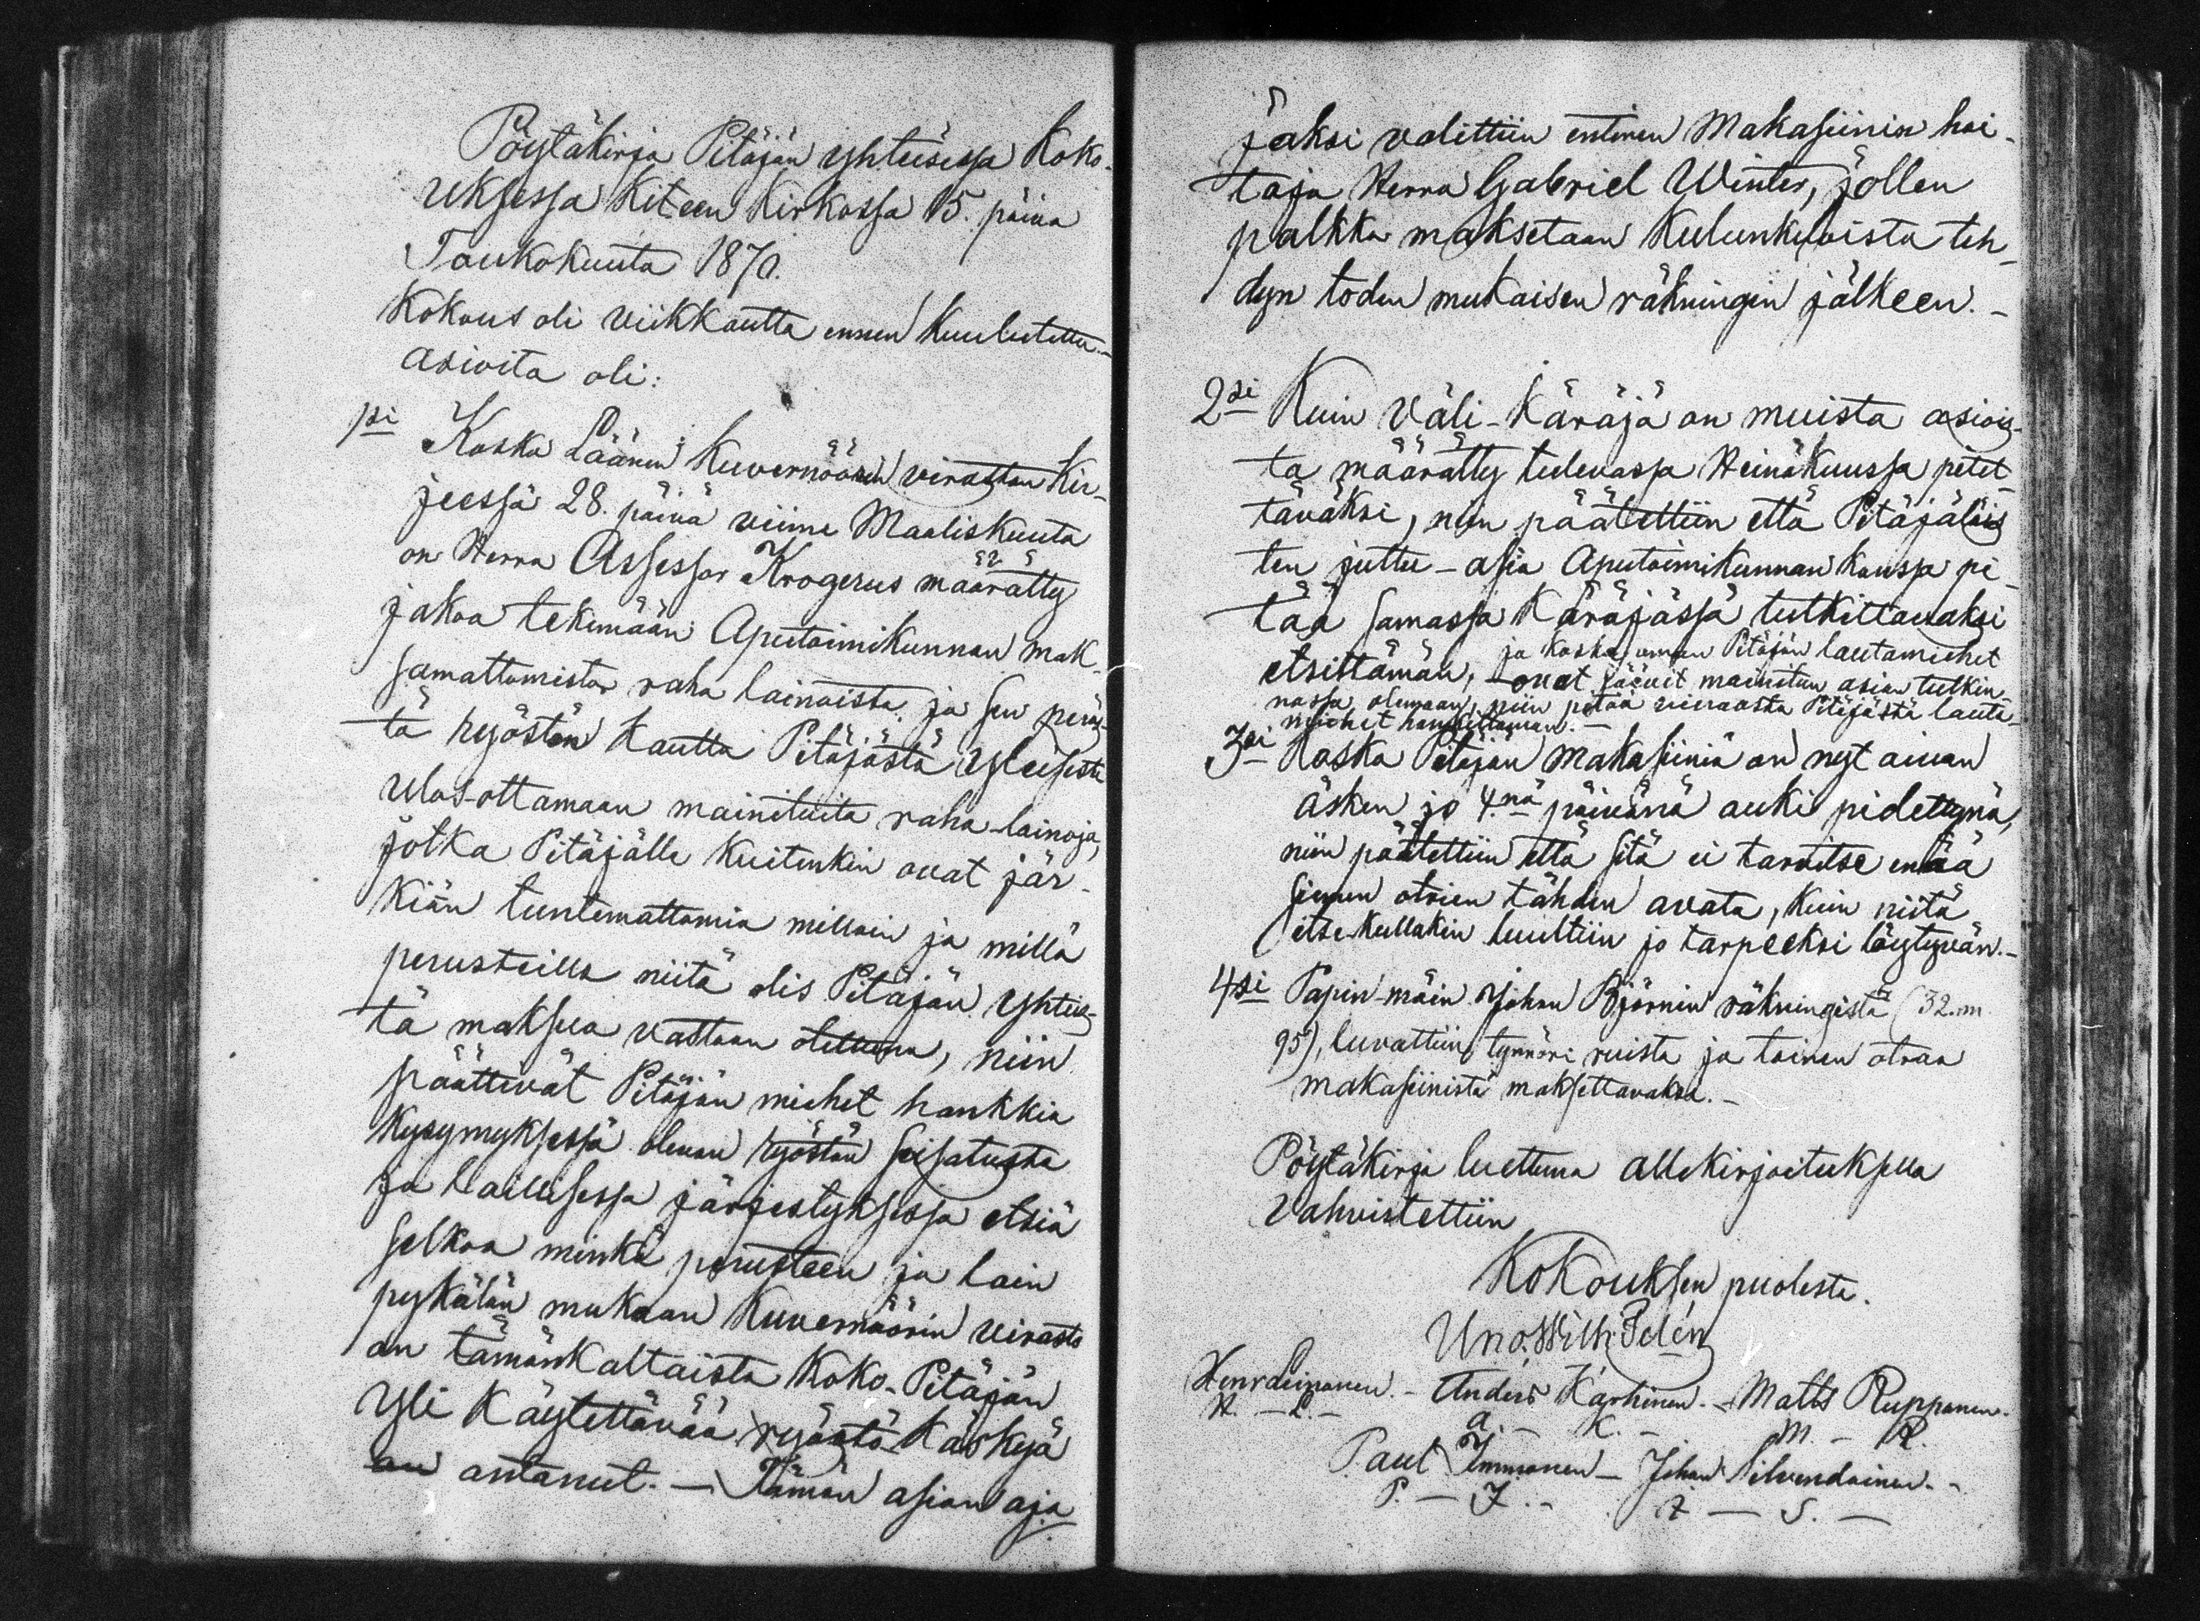 Pöytäkirja Pitäjän yhteisessä Koko-
uksessa Kiteen Kirkossa 15. päivä
Toukokuuta 1870.
Kokous oli viikkautta ennen kuulutettu.-
asioita oli:
1si Koska Läänin Kuvernöörin viraston Kir-
jeessä 28. päivä viime Maaliskuuta
on Herra Assessor Krogerus määrätty
jakoa tekemään Aputoimikunnan mak-
samattomista raha lainoista, ja sen perus-
tä ryöstön kautta Pitäjästä yleisesti
ulos-ottamaan mainituita raha-lainoja,
jotka Pitäjälle Kuitenkin ovat jär-
kiän tuntemattomia milloin ja millä
perusteilla niitä olis Pitäjän yhteis-
tä maksua vastaan otettuna, niin
päättivät Pitäjän miehet hankkia
Kysymyksessä olevan ryöstön seisatusta
ja laillisessa järjestyksessä etsiä
selkoa minkä perusteen ja lain
pykälän mukaan Kuvernöörin virasto
on tämänkaltaista Koko-Pitäjän
yli Käytettävää ryöstö-Käskyjä
antanut. — Tämän asian aja
jaksi valittiin entinen Makasiinin hoi-
taja Herra Gabriel Winter, jollen
palkka maksetaan Kulunkiloista teh-
dyn toden mukaisen räkningin jälkeen. -
2si Kuin Väli-Käräjä on muista asiois-
ta määrätty tulevassa Heinäkuussa pitet-
täväksi, niin päätettiin että Pitäjäläis
ten juttu-asia Aputoimikunnan kanssa pi-
tää samassa Käräjässä tutkittavaksi
etsittämän, ja koska oman Pitäjän lautamiehet
ovat jäävit mainitun asian tutkin-
nassa olemaan, niin pitää vieraasta Pitäjästä lauta-
miehet hankittaman. -
3si Koska Pitäjän makasiinia on nyt aivan
äsken jo 4.nä päivänä auki pidettynä,
niin päätettiin että sitä ei tarvitse enää
siemen otrien tähden avata, kuin niitä
itse-kullakin luultiin jo tarpeeksi löytyvän. -
4si Papin-mäin Johan Björnin räkningistä (32.m
95), luvattiin tynnöri ruista ja toinen otraa
makasiinista maksettavaksi. -
Pöytäkirja luettuna allekirjoituksella
Vahvistettiin
Kokouksen puolesta.
Uno. With: Telén
Henr Leinonen. - Anders Karhinen. - Matts Ruppanen.
H. — L. - A. — K. - M. — R.
Paul Immonen — Johan Silvendoinen. -
P. — I. - J. — S. —